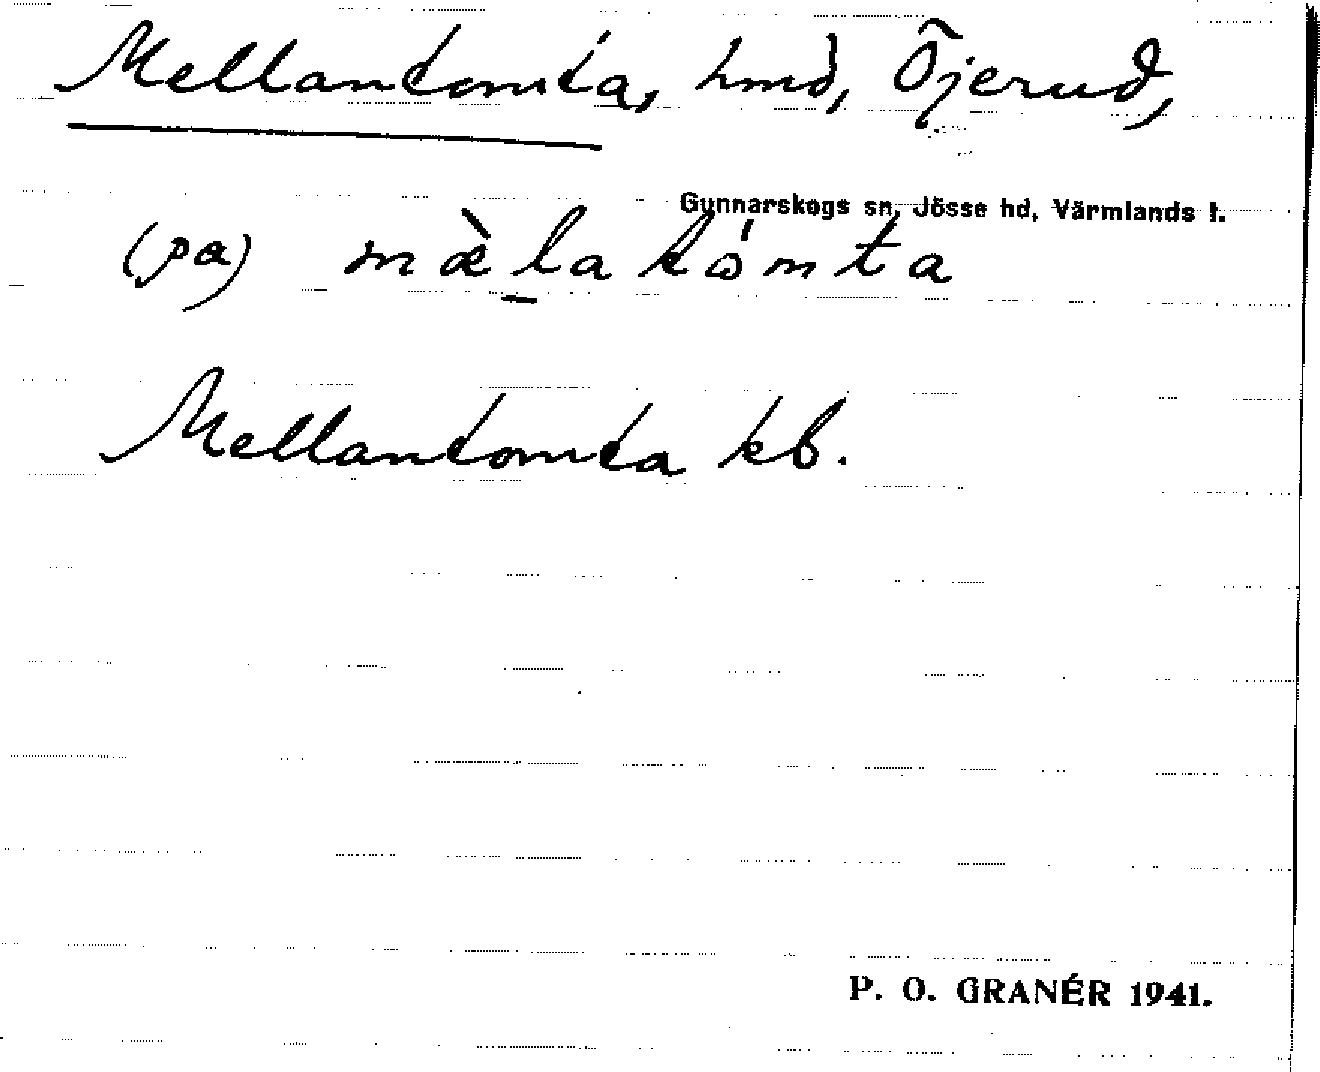 Mellantomta, hmd, Öjerud,
Gunnarskogs sn, Jösse hd, Värmlands l.
(pa) mæ̀latómta
Mellantomta kb.
P. O. GRANÉR 1941.